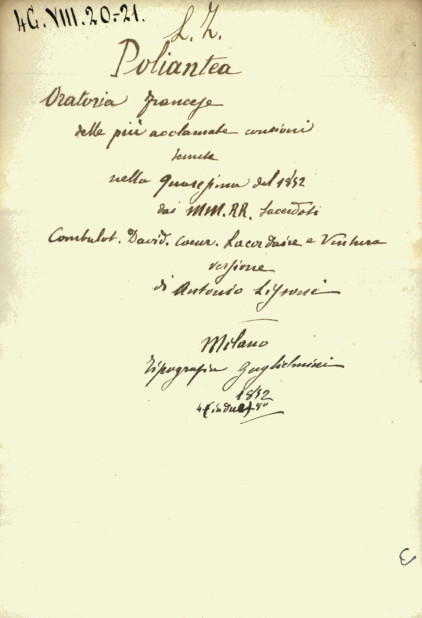 4G.VIII.20-21.
L. Z.
Poliantea
Oratoria Francese
delle più acclamate concioni
tenute
nella Quaresima del 1852
dai MM. RR. Sacerdoti
Combalot. David. Coeur. Lacordaire e Ventura
versione
di Antonio
Milano
Tipografia Guglielmini
1852